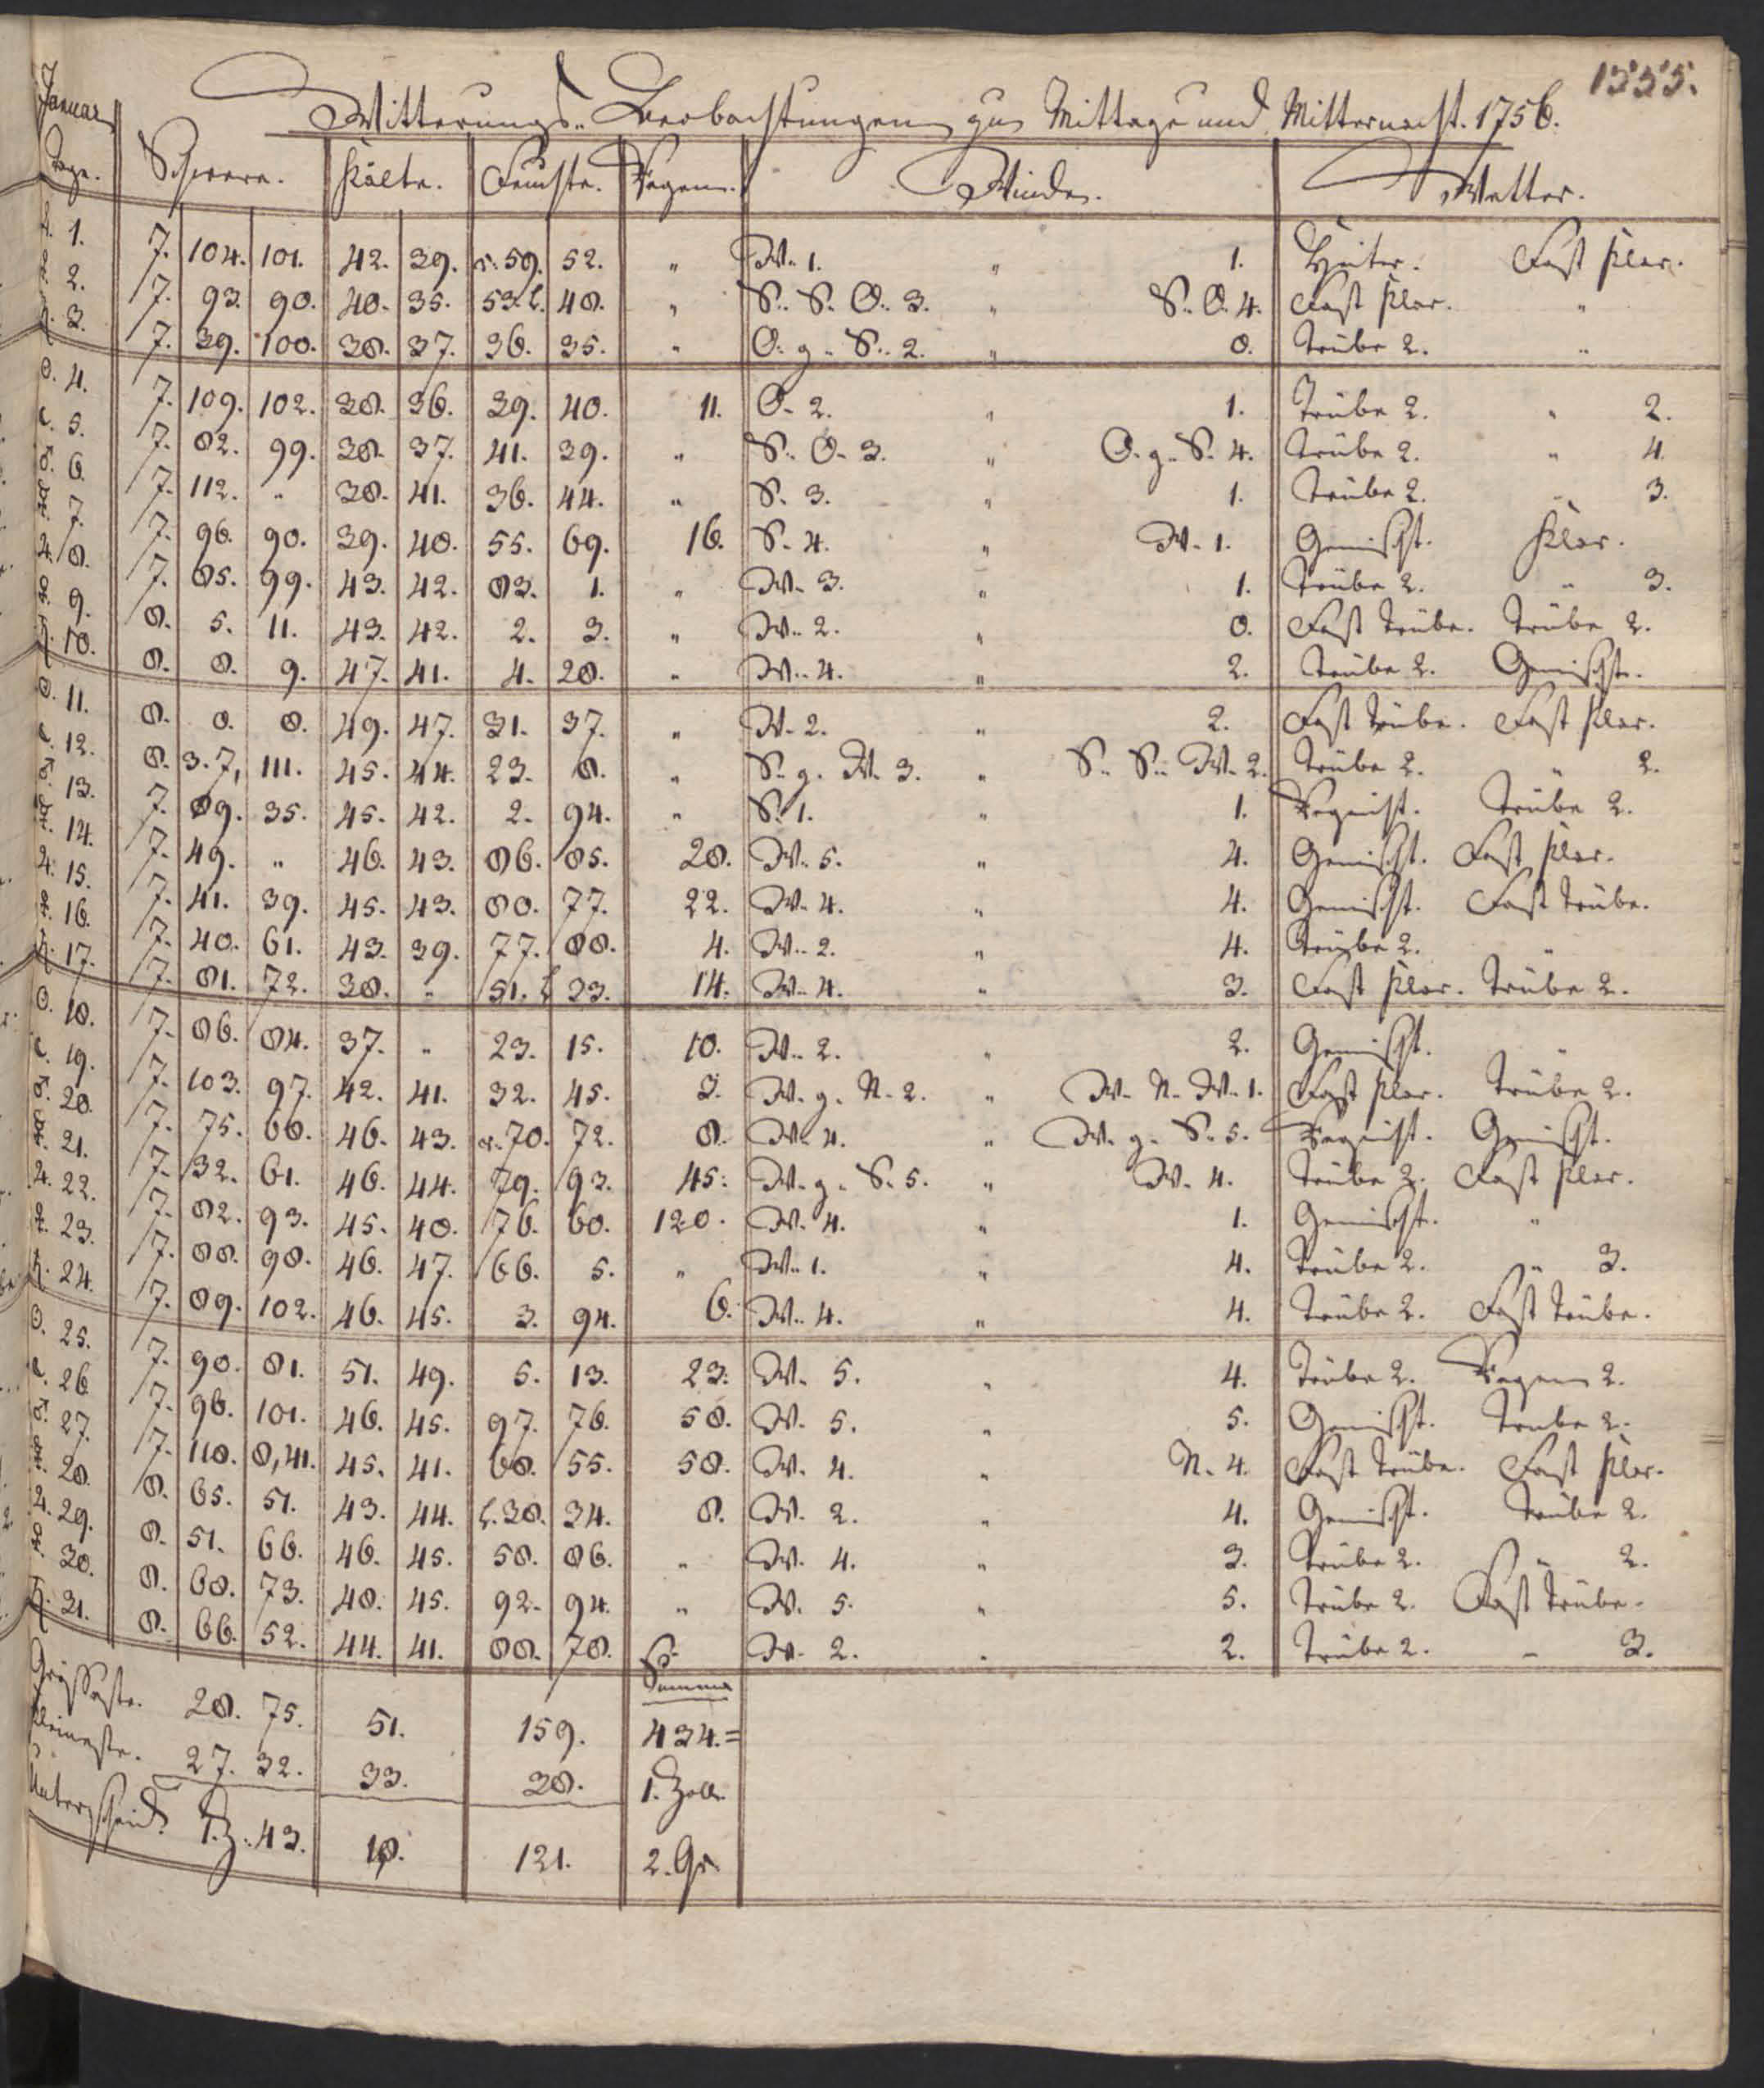 1355.
Januar Witterungs-Beobachtungen zu Mittage und Mitternacht. 1756.
Tage. Schwere. Kälte. Feuchte. Regen. Winde. Wetter.
♃. 1. 7. 104. 101. 42. 39. r. 59. 52. " W. 1. " 1. Heiter. Fast klar.
♀. 2. 7. 93. 90. 40. 35. 53. l. 48. " S. S. O. 3. " S. O. 4. Fast klar. "
♄. 3. 7. 39. 100. 38. 37. 36. 35. " O. g. S. 2. " 0. Trübe 2. "
☉. 4. 7. 109. 102. 38. 36. 39. 40. 11. O. 2. " 1. Trübe 2. " 2.
☾. 5. 7. 82. 99. 38. 37. 41. 39. " S. O. 3. " O. g. S. 4. Trübe 2. " 4.
♂. 6. 7. 112. " 38. 41. 36. 44. " S. 3. " 1. Trübe 2. " 3.
☿. 7. 7. 96. 90. 39. 40. 55. 69. 16. S. 4. " W. 1. Gemischt. Klar.
♃. 8. 7. 85. 99. 43. 42. 83. 1. " W. 3. " 1. Trübe 2. " 3.
♀. 9. 8. 5. 11. 43. 42. 2. 3. " W. 2. " 0. Fast trübe. Trübe 2.
♄. 10. 8. 8. 9. 47. 41. 4. 28. " W. 4. " 2. Trübe 2. Gemischt.
☉. 11. 8. 8. 8. 49. 47. 31. 37. " W. 2. " 2. Fast trübe. Fast klar.
☾. 12. 8. 3. 7, 111. 45. 44. 23. 8. " S. g. W. 3. " S. S. W. 2. Trübe 2. " 2.
♂. 13. 7. 89. 35. 45. 42. 2. 94. " S. 1. " 1. Regnicht. Trübe 2.
☿. 14. 7. 49. " 46. 43. 86. 85. 28. W. 5. " 4. Gemischt. Fast klar.
♃. 15. 7. 41. 39. 45. 43. 80. 77. 22. W. 4. " 4. Gemischt. Fast trübe.
♀. 16. 7. 40. 61. 43. 39. 77. 88. 4. W. 2. " 4. Trübe 2. "
♄. 17. 7. 81. 72. 38. " 51. l. 23. 14. W. 4. " 3. Fast klar. Trübe 2.
☉. 18. 7. 86. 84. 37. " 23. 15. 10. W. 2. " 2. Gemischt. "
☾. 19. 7. 103. 97. 42. 41. 32. 45. 3. W. g. N. 2. " W. N. W. 1. Fast klar. Trübe 2.
♂. 20. 7. 75. 66. 46. 43. r. 70. 72. 8. W. 4. " W. g. S. 5. Regnicht. Gemischt.
☿. 21. 7. 32. 61. 46. 44. 79. 93. 45. W. g. S. 5. " W. 4. Trübe 2. Fast klar.
♃. 22. 7. 82. 93. 45. 40. 76. 60. 120. W. 4. " 1. Gemischt. "
♀. 23. 7. 88. 98. 46. 47. 66. 5. " W. 1. " 4. Trübe 2. " 3.
♄. 24. 7. 89. 102. 46. 45. 3. 94. 6. W. 4. " 4. Trübe 2. Fast trübe.
☉. 25. 7. 90. 81. 51. 49. 5. 13. 23. W. 5. " 4. Trübe 2. Regen 2.
☾. 26. 7. 96. 101. 46. 45. 97. 76. 58. W. 5. " 5. Gemischt. Trübe 2.
♂. 27. 7. 110. 8, 41. 45. 41. 68. 55. 58. W. 4. " N. 4. Fast trübe. Fast klar.
☿. 28. 8. 65. 51. 43. 44. l. 38. 34. 8. W. 2. " 4. Gemischt. Trübe 2.
♃. 29. 8. 51. 66. 46. 45. 58. 86. " W. 4. " 3. Trübe 2. " 2.
♀. 30. 8. 68. 73. 48. 45. 92. 94. " W. 5. " 5. Trübe 2. Fast trübe.
♄. 31. 8. 66. 52. 44. 41. 88. 78. W. 2. " 2. Trübe 2. " 3.
Summa
Grösseste. 28. 75. 51. 159. 434. =
Kleineste. 27. 32. 33. 38. 1. Zoll.
Unterscheid. 1. Z. 43. 18. 121. 2. Gr.